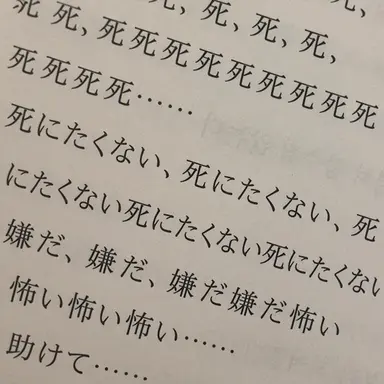 死、死、死、死、
死 死、死死死死死死死死死
死死死死……
死にたくない、死にたくない、死
にたくない死にたくない死にたくない
嫌だ、嫌だ、嫌だ嫌だ怖い
怖い怖い怖い……
助けて……